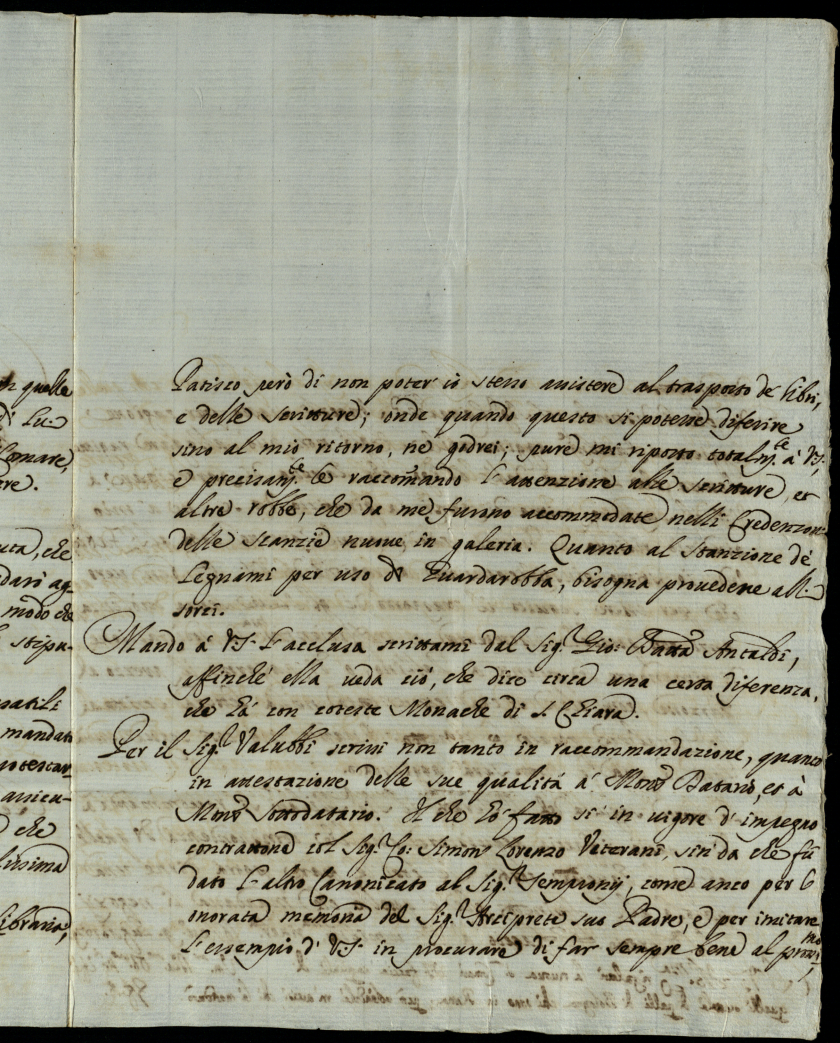 n quelle
di Lu-
Comare,
re.
uta, che
dari ag-
modo che
stipu-
satili
mandato
protestar
assicu-
che
lissima
ibraria,
Patisco però di non poter io stesso assistere al trasporto de' libri,
e delle scritture; onde quando questo si potesse diferire
sino al mio ritorno, ne godrei; pure mi riporto totalm.te à VS.,
e precisam.te le raccomando l'attenzione alle scritture, et
altre robbe, che da me furono accommodate nelli Credenzon-
delle stanzie nuove in galeria. Quanto al stanzione de'
Legnami per uso di Guardarobba, bisogna provedere alli
sorci.
Mando à VS. l'acclusa scrittami dal Sig.r Gio: Batta Antaldi,
affinché ella veda ciò, che dice circa una certa diferenza,
che hà con coteste Monache di S. Chiara.
Per il Sig.r Valubbi scrissi non tanto in raccommandazione, quanto
in attestazione delle sue qualità à Mons.r Datario, et à
Mons.r Sottodatario. Il che hò fatto sì in vigore d'impegno
contrattone col Sig.r Co: Simon Lorenzo Veterani, sin da che fù
dato l'altro Canonicato al Sig.r Sempronij, come anco per l'
onorata memoria del Sig.r Arciprete suo Padre, e per imitare
l'essempio di VS. in procurare di far sempre bene al pross.mo